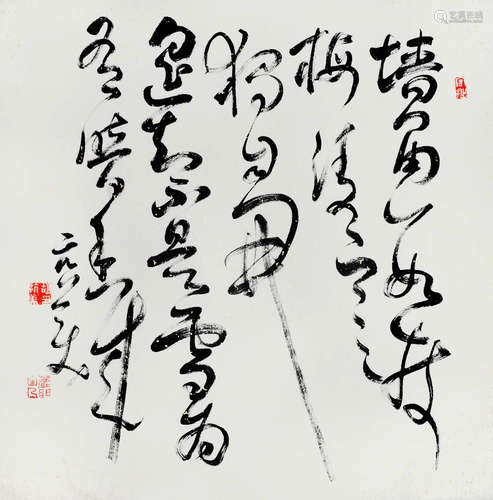 墙角数枝
梅凌寒
独自開
遥知不是雪为
有暗香来